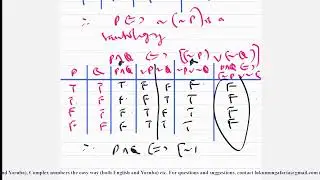 ∴ P ⇔ ~(~P) is a
tautology
P∧Q ⇔ [(~P) ∨ (~Q)]
P Q P∧Q ~P ~Q ~P∨~Q P∧Q ⇔
T T T F F F F
T F F F T T F
F T F T F T F
F F F T T T F
∴ P∧Q ⇔ [~
and Yoruba); Complex numbers the easy way (both English and Yoruba) etc. For questions and suggestions, contact